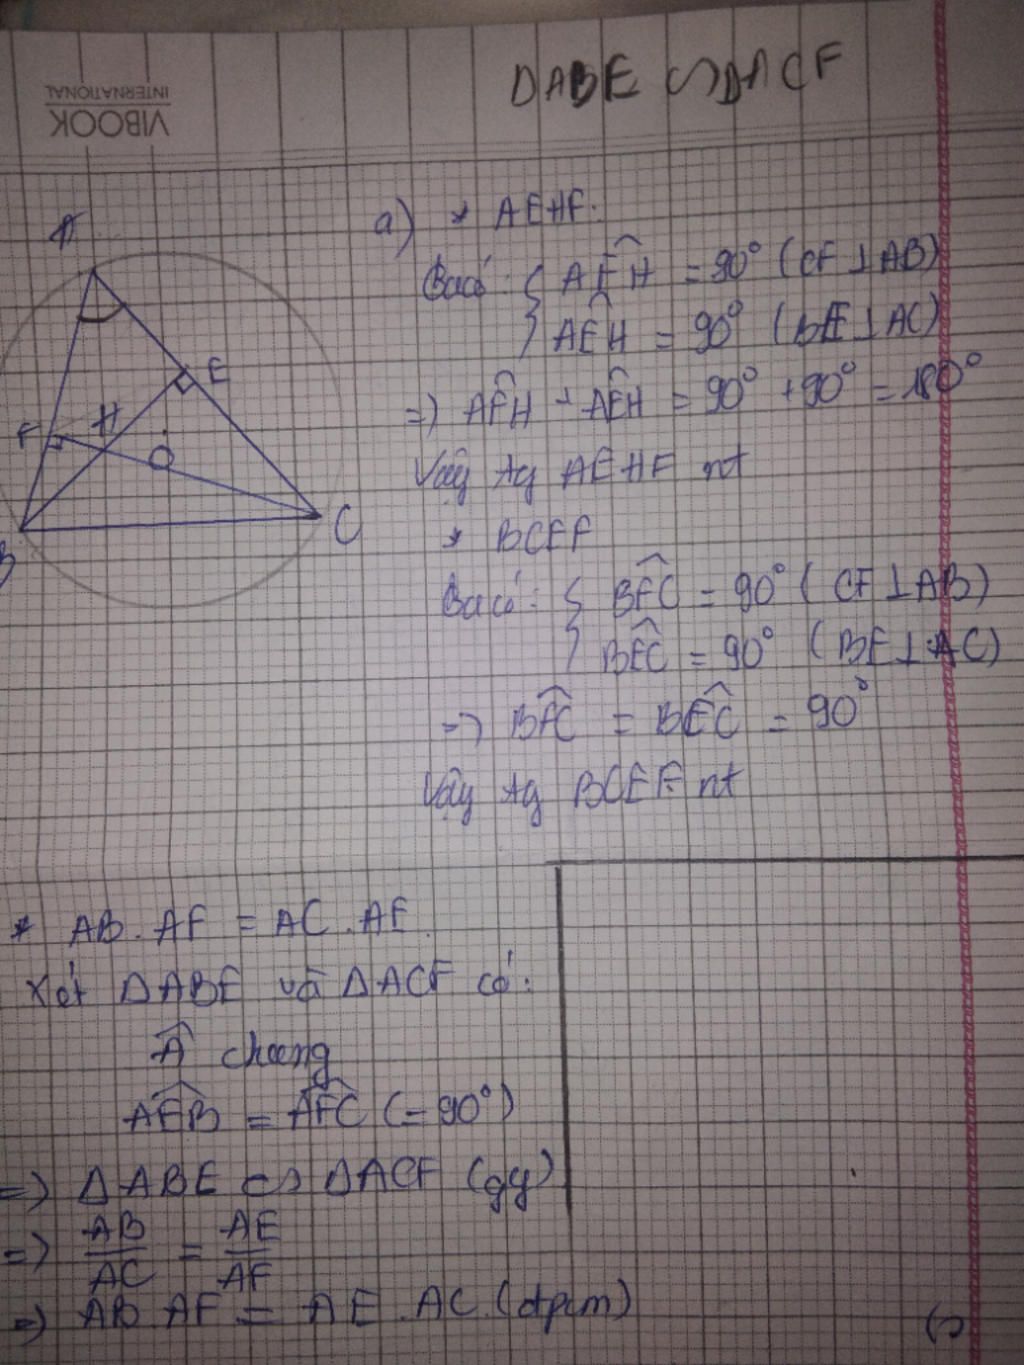 VIBOOK
INTERNATIONAL
ΔABE ∽ ΔACF
A
E
F
H
O
B
C
a) * AEHF:
Ta có: { AFH = 90° (CF⊥AB)
AEH = 90° (BE⊥AC)
=) AFH + AEH = 90° + 90° = 180°
Vậy tg AEHF nt
* BCEF
Ta có: { BFC = 90° (CF⊥AB)
BEC = 90° (BE⊥AC)
=) BFC = BEC = 90°
Vậy tg BCEF nt
* AB.AF = AC.AE.
Xét ΔABE và ΔACF có:
Â chung
AEB = AFC (= 90°)
=) ΔABE ∽ ΔACF (gg)
=) AB/AC = AE/AF
=) AB.AF = AE.AC (đpcm)